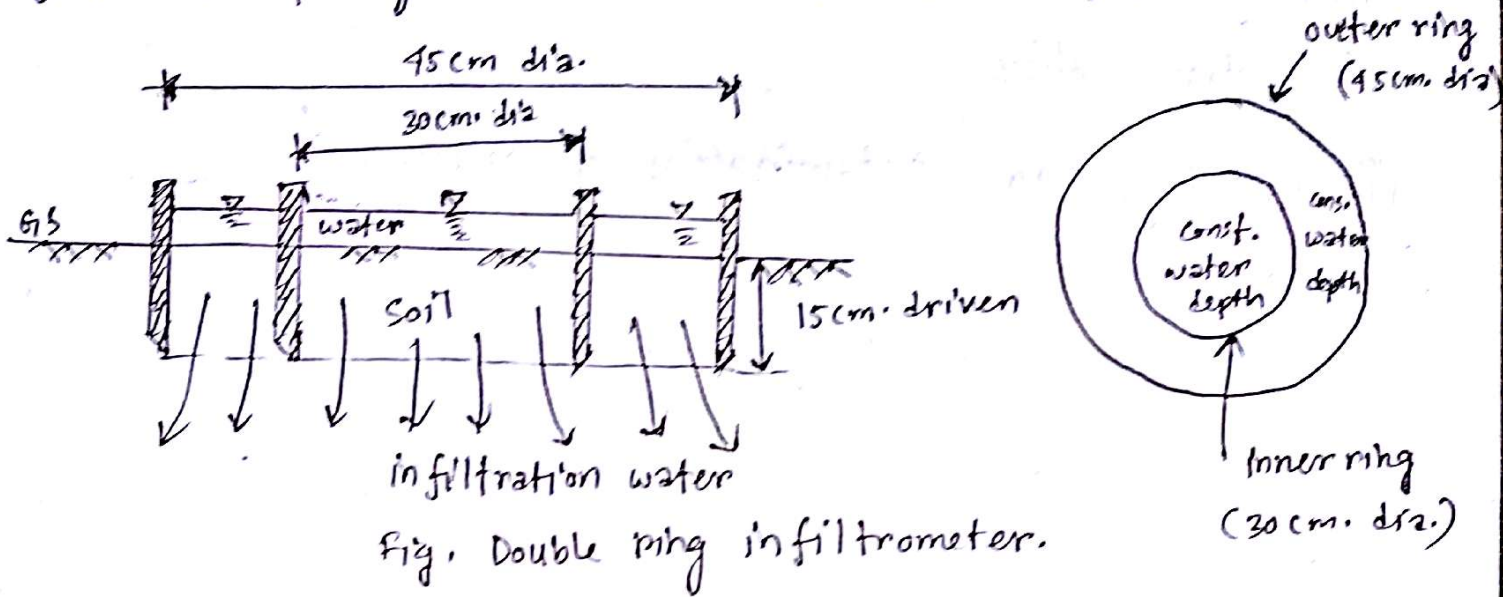 45cm dia.
30cm. dia
GS
water
soil
15cm. driven
infiltration water
Fig. Double ring infiltrometer.
outter ring
(45cm. dia)
const.
water
depth
cons.
water
depth
Inner ring
(30cm. dia.)